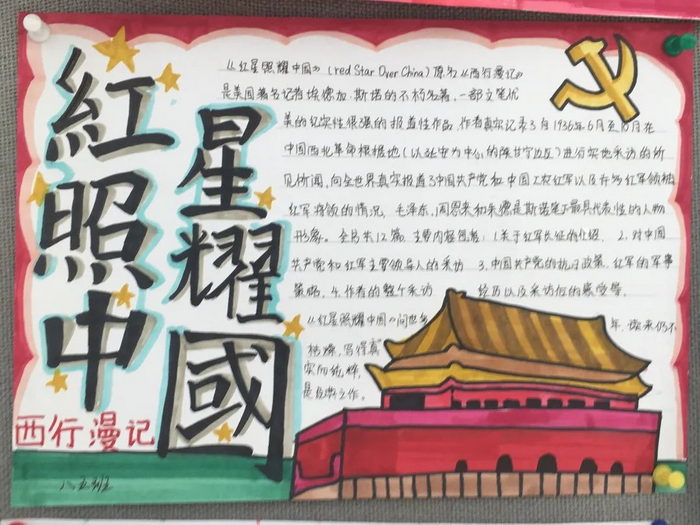 紅照中
星耀國
西行漫记
《红星照耀中国》(red Star Over China)原名《西行漫记》
是美国著名记者埃德加·斯诺的不朽名著,一部文笔优
美的纪实性很强的报道性作品。作者真实记录了自1936年6月至10月在
中国西北革命根据地(以延安为中心的陕甘宁边区)进行实地采访的所
见所闻,向全世界真实报道了中国共产党和中国工农红军以及许多红军领袖
红军将领的情况。毛泽东、周恩来和朱德是斯诺笔下最具代表性的人物
形象。全书共12篇,主要内容包括:1.关于红军长征的介绍。2.对中国
共产党和红军主要领导人的采访 3.中国共产党的抗日政策,红军的军事
策略。4.作者的整个采访 经历以及采访后的感受等。
《红星照耀中国》问世多 年,读来仍不